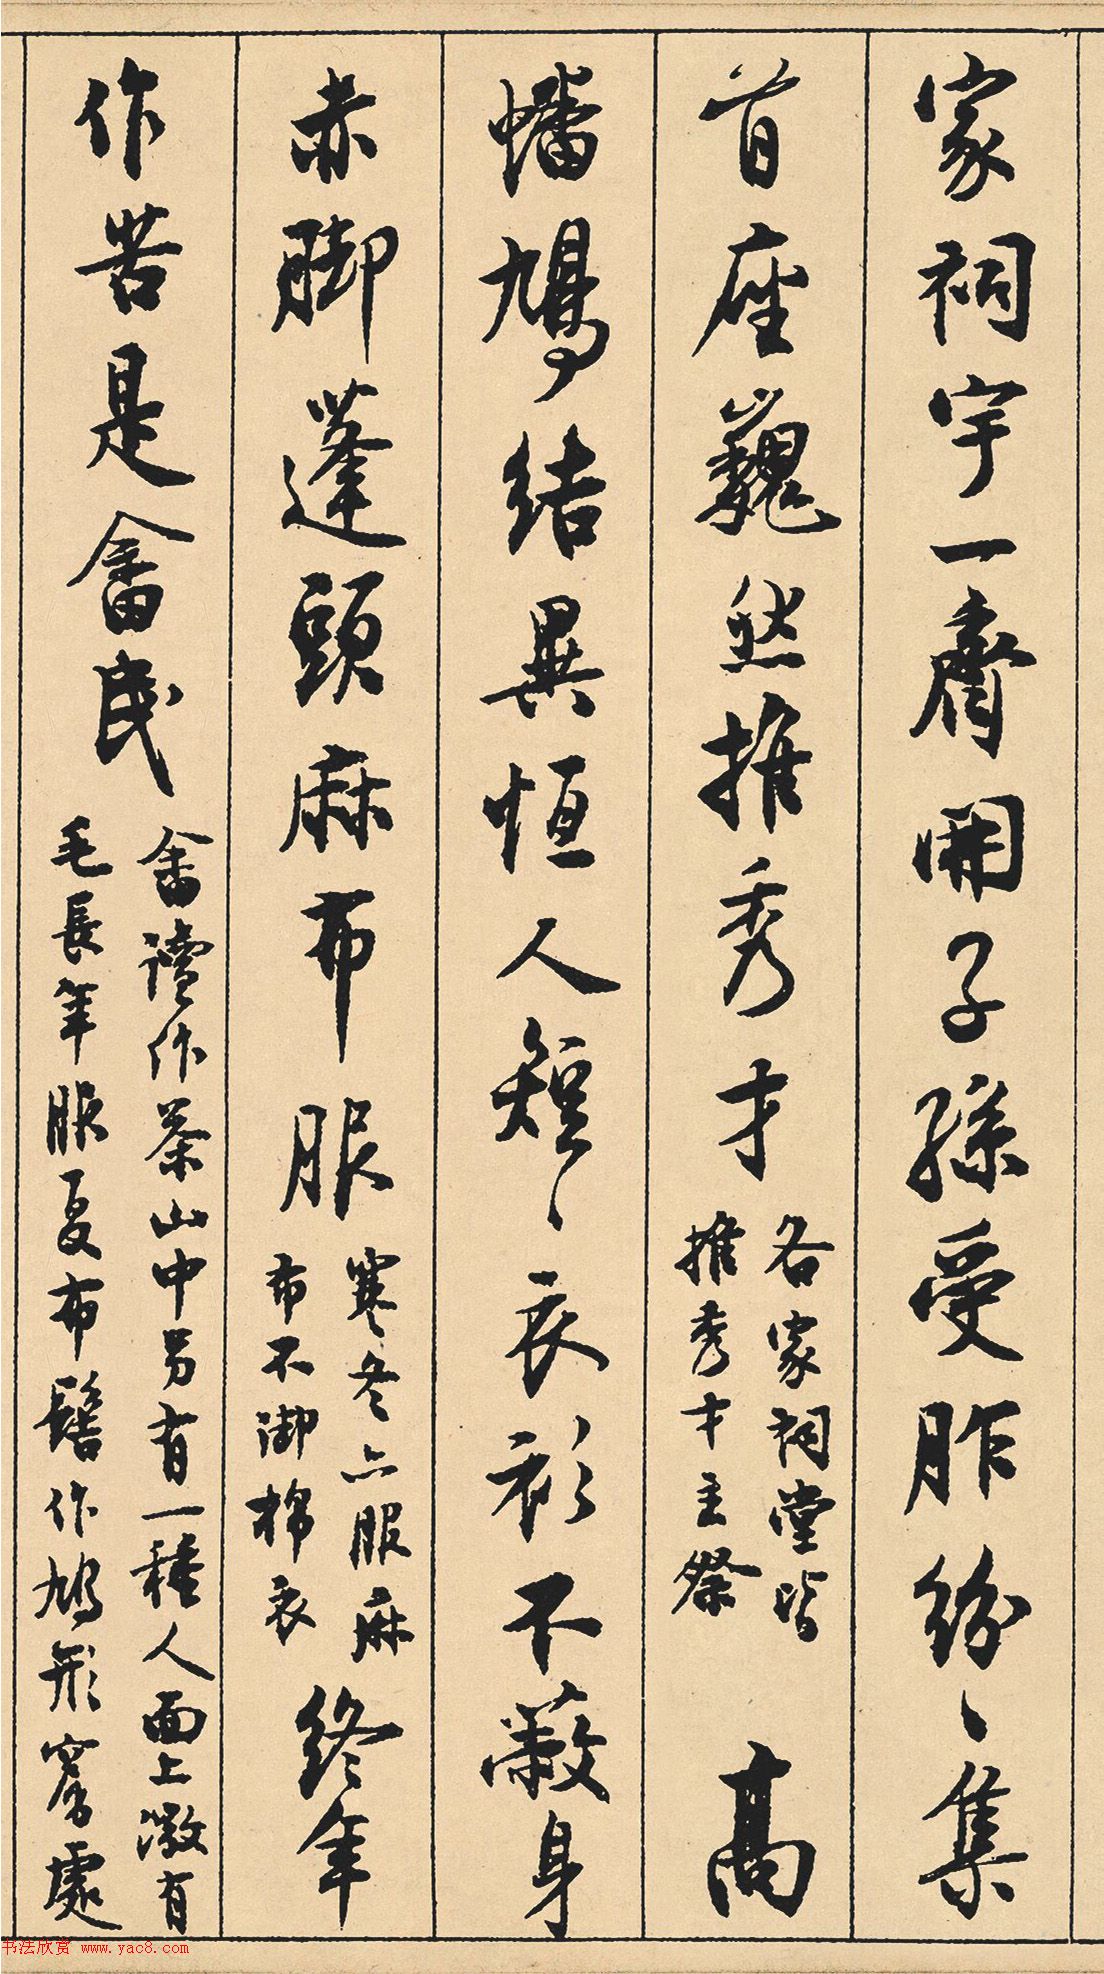 家祠宇一齊開子孫受胙紛〻集
首座巍然推秀才
各家祠堂皆
推秀才主祭
高
幡鳩結異恒人短〻衣衫不蔽身
赤脚蓬頭麻布服
寒冬亦服麻
布不御棉衣
終年
作苦是畬民
畬讀作茶山中另有一種人面上澂有
毛長年服夏布髻作鳩形窩處
书法欣赏 www.yac8.com